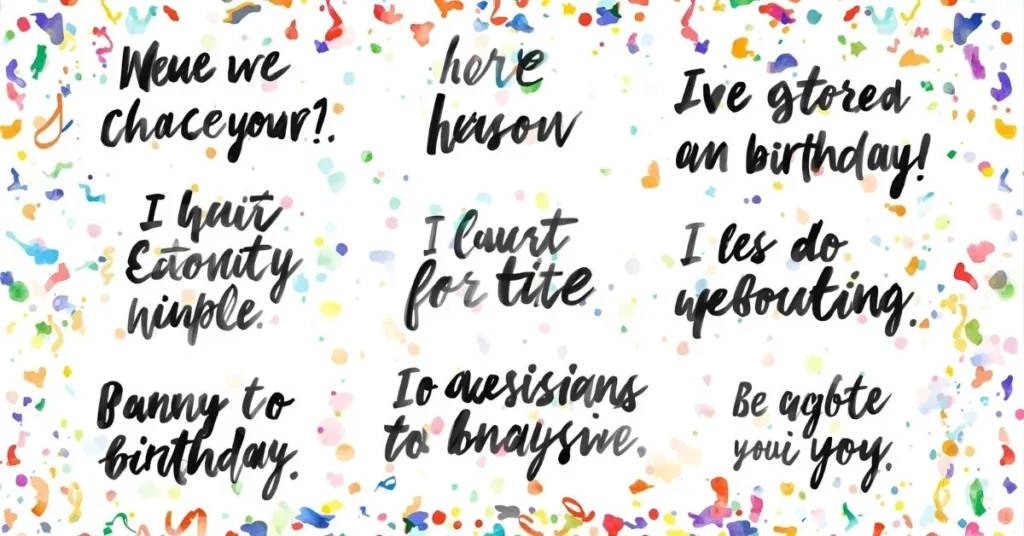 Weue we
chaceyour?.
here
hason
I've gtored
an birthday!
I hait
Eatonity
niuple.
I laurt
for tite
I les do
webouting.
Banny to
birthday.
Io auesisians
to bnaysive.
Be agbte
youi yoy.